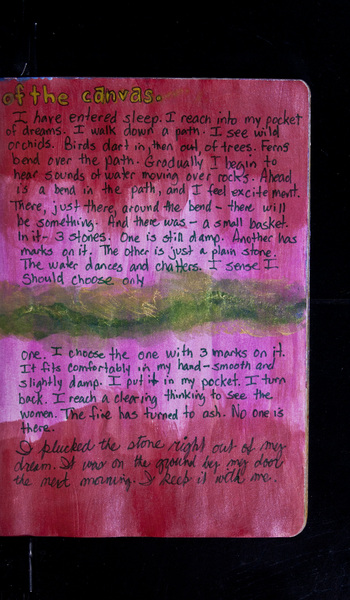 of the canvas.
I have entered sleep. I reach into my pocket
of dreams. I walk down a path. I see wild
orchids. Birds dart in, then out, of trees. Ferns
bend over the path. Gradually I begin to
hear sounds of water moving over rocks. Ahead
is a bend in the path, and I feel excitement.
There, just there, around the bend - there will
be something. And there was - a small basket.
In it - 3 stones. One is still damp. Another has
marks on it. The other is just a plain stone.
The water dances and chatters. I sense I
should choose only
one. I choose the one with 3 marks on it.
It fits comfortably in my hand - smooth and
slightly damp. I put it in my pocket. I turn
back. I reach a clearing thinking to see the
women. The fire has turned to ash. No one is
there.
I plucked the stone right out of my
dream. It was on the ground by my door
the next morning. I keep it with me.